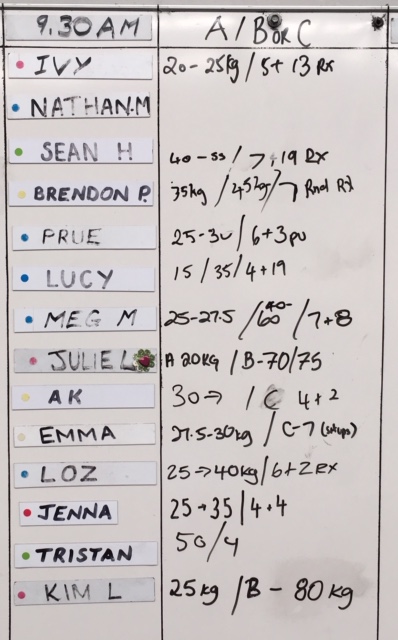 9.30AM A/B or C
IVY 20-25kg / 5+13 Rx
NATHAN.M
SEAN H 40-55 / 7+19 Rx
BRENDON P. 35kg / 45kg / 7 Rnd Rx
PRUE 25-30 / 6+3pu
LUCY 15/35/4+19
MEG M 25-27.5 / 60 / 7+8
JULIE L A 20KG / B-70/75
AK 30→ / C 4+2
EMMA 27.5-30kg / C-7 (situps)
LOZ 25→40kg / 6+2 Rx
JENNA 25→35 / 4+4
TRISTAN 50/4
KIM L 25kg / B - 80kg